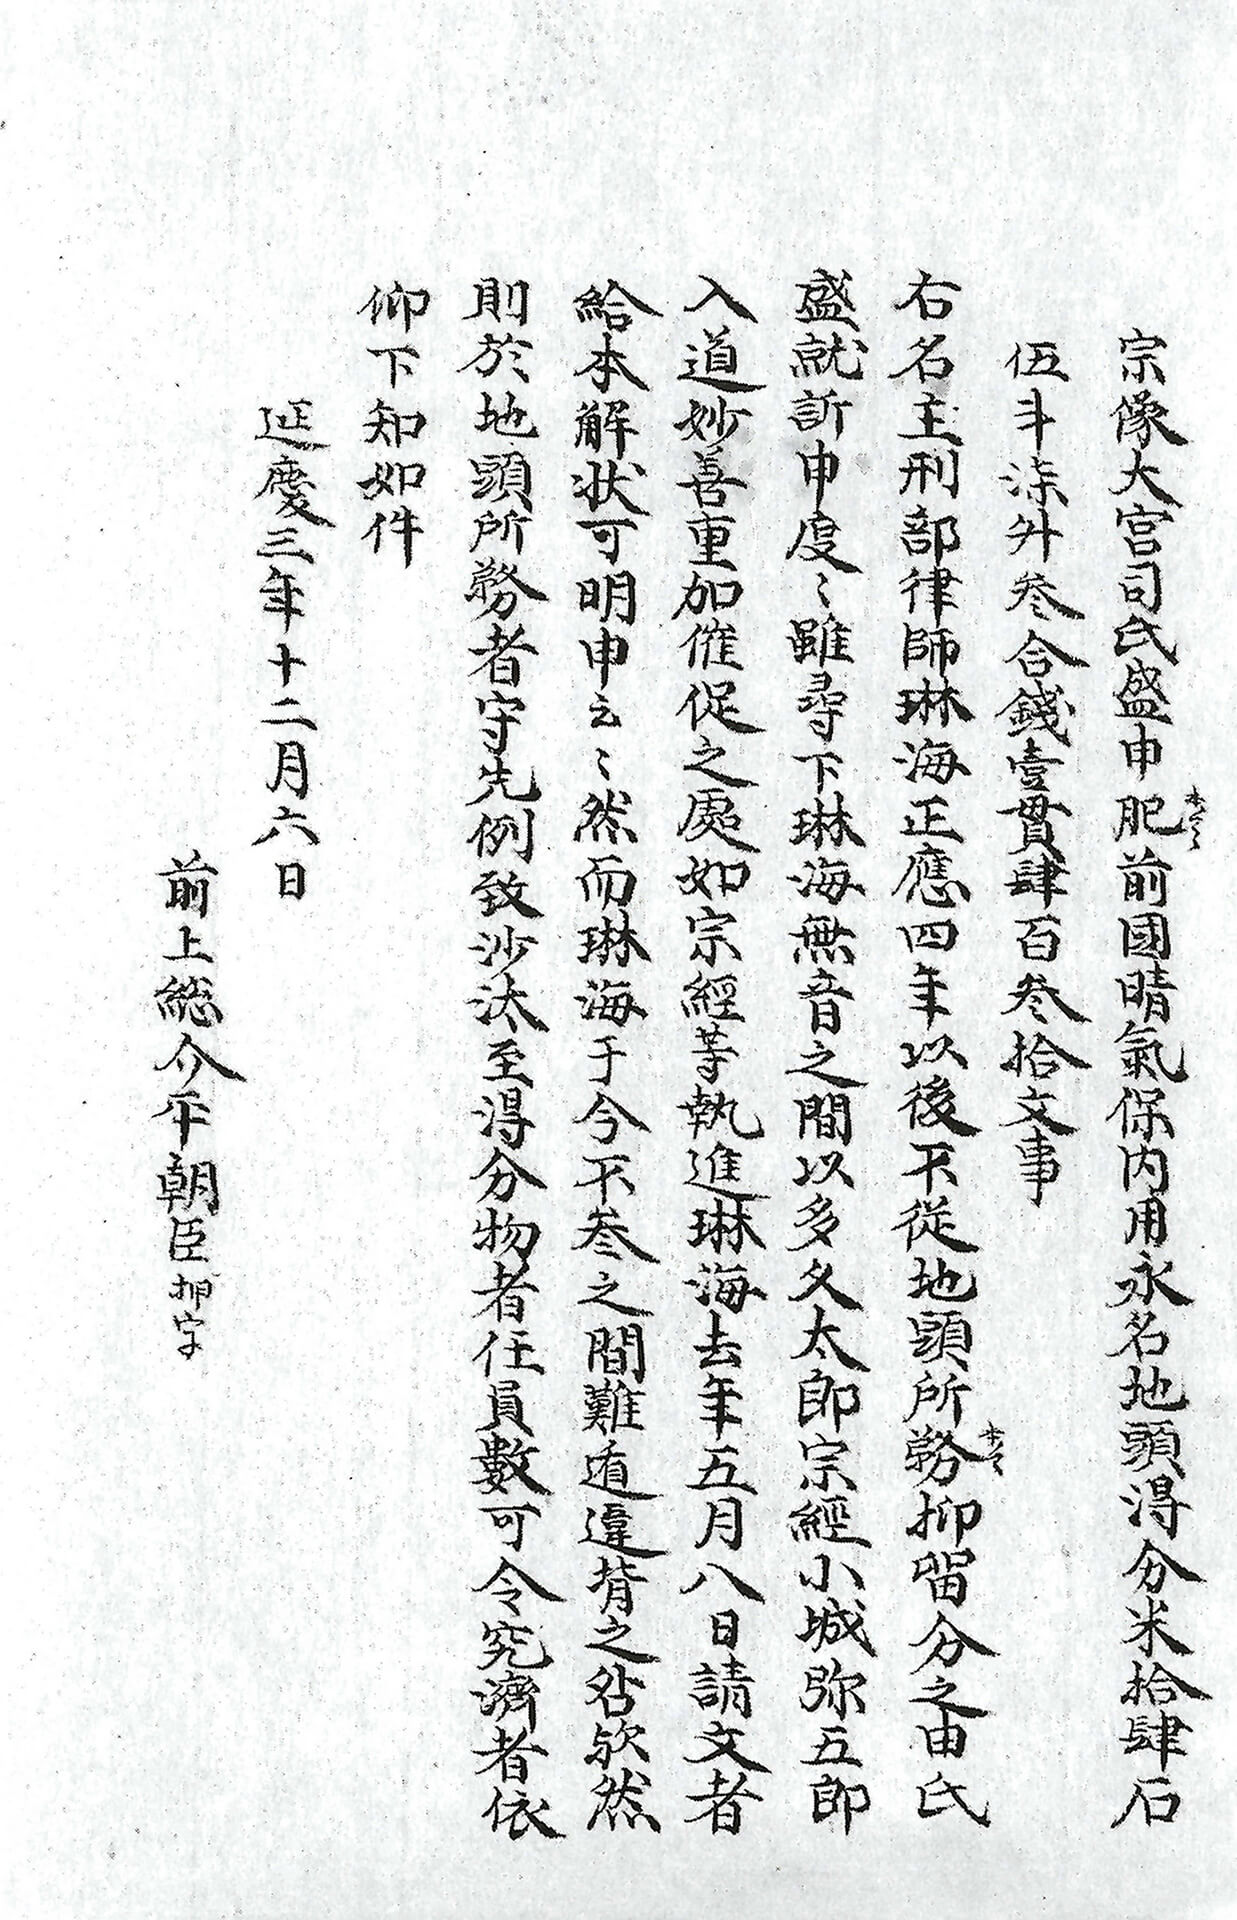 宗像大宮司氏盛申肥前國晴氣保内用永名地頭得分米拾肆石
伍斗柒升叁合錢壹貫肆百叁拾文事
右名主刑部律師琳海正應四年以後不從地頭所務抑留分之由氏
盛就訴申度〻雖尋下琳海無音之間以多久太郎宗經小城弥五郎
入道妙善重加催促之處如宗經等執進琳海去年五月八日請文者
給本解状可明申云〻然而琳海于今不叁之間難遁違背之咎歟然
則於地頭所務者守先例致沙汰至得分物者任員數可令究濟者依
仰下知如件
延慶三年十二月六日
前上総介平朝臣押字